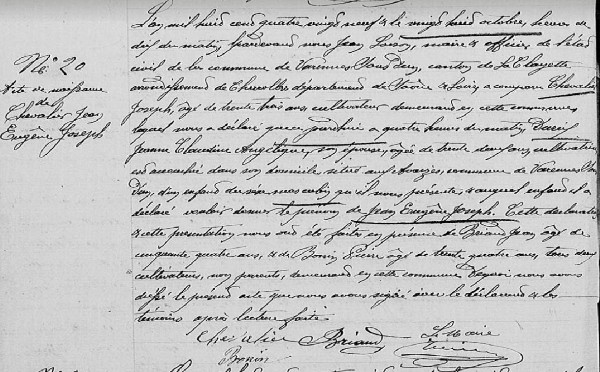 N° 20
Acte de naissance
de
Chevalier Jean
Eugène Joseph
L'an mil huit cent quatre vingt neuf & le vingt huit octobre heures de
dix du matin, pardevant nous Jean maire & officier de l'état
civil de la commune de Varennes S/s Dun, canton de La Clayette
arrondissement de Charolles département de Saône & Loire, a comparu Chevalier
Joseph, âgé de trente trois ans, cultivateur demeurant en cette commune,
lequel nous a déclaré que à quatre heures du matin,
Jeanne Claudine Angélique, son épouse, âgée de trente ans, cultivatrice
est accouchée dans son domicile situé aux commune de Varennes S/s
Dun, d'un enfant de sexe masculin qu'il nous présente & auquel enfant il a
déclaré vouloir donner le prénom de Jean Eugène Joseph. Cette déclaration
& cette présentation nous ont été faites en présence de Briand Jean, âgé de
cinquante quatre ans, & de Bonin âgé de trente quatre ans, tous deux
cultivateurs, non parents, demeurant en cette commune. Et nous avons
le présent acte que nous avons signé avec le déclarant & les
témoins après lecture faite.
Chevalier Briand Le Maire
Bonin